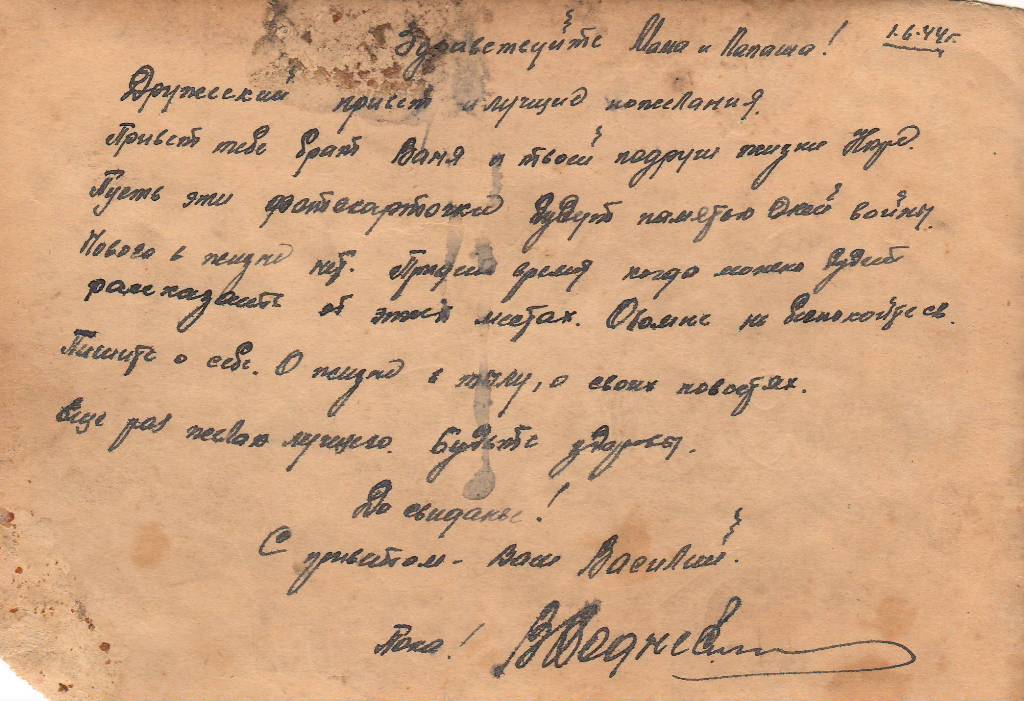 1.6.44г.
Здравствуйте Мама и Папаша!
Дружеский привет и лучшие пожелания.
Привет тебе брат Ваня и твоей подруги жизни Нюре.
Пусть эти фотокарточки будут памятью о моей войны.
Нового в жизни нет. Придет время когда можно будет
рассказать об этих местах. Обо мне не беспокойтесь.
Пишите о себе. О жизни в тылу, о своих новостях.
Еще раз желаю лучшего. Будьте здоровы.
До свиданье!
С приветом - Ваш Василий.
Пока!